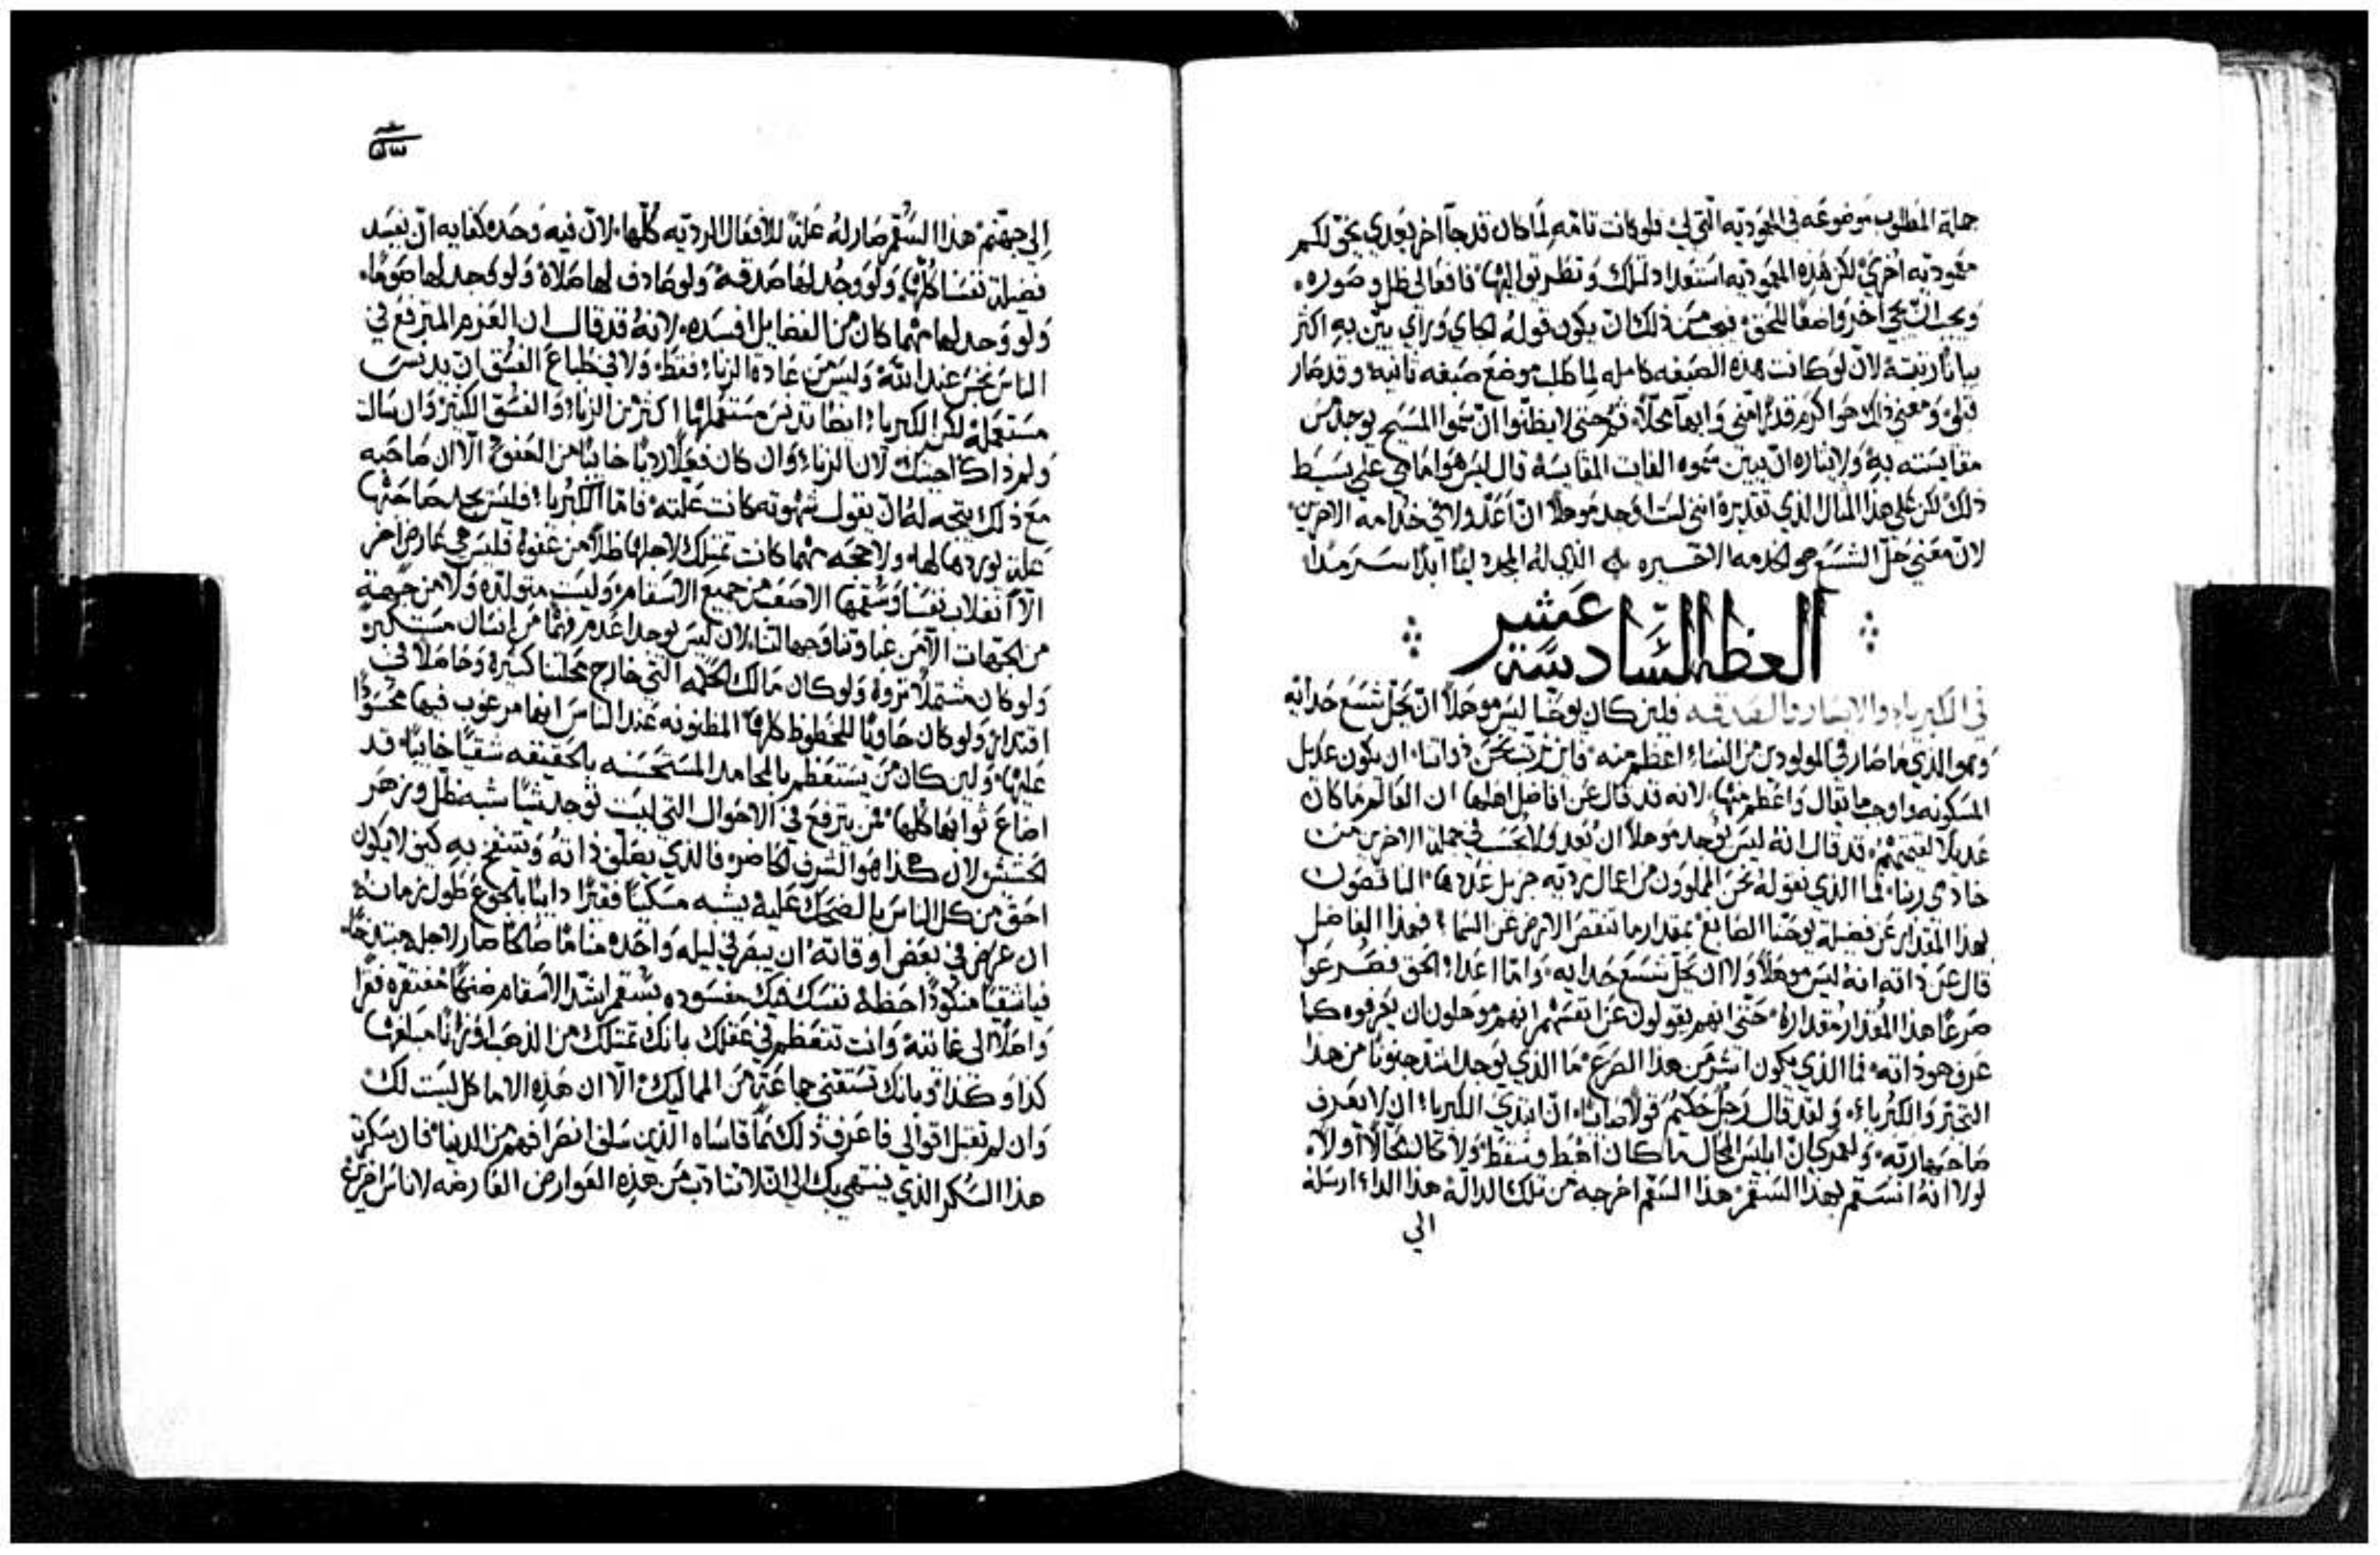 جملة المطلوب موضوعه في المعموديه التي لي فلو كانت تامه لما كان قد جا اخر بعدي يحق لكم
معموديه اخري لكن هذه المعموديه استعدادا لتلك وتطريقا اليها فافعالي ظل وصوره
ويجب ان يجي اخر واضعا للحق فمن ذلك ان يكون قوله الجاي وراي بين به اكثر
بيانا رتبته لان لو كانت هذه الصيغه كامله لما طلب موضع صيغه ثانيه وقد صار
قبلي ومعني ذلك هو اكرم قدرا مني وابها محلا ثم حتي لا يظنوا ان سمو المسيح يوجد من
مقايسته به ولايثاره ان يبين سموه الفايت المقايسة قال ليس هو امامي علي بسيط
ذلك لكن علي هذا المثال الذي تقديره انني لست اوجد موهلا ان اعد ولا في خدامه الاخرين
لان معني حل الشسع هو الخدمه الاخيره الذي له المجد لينا ابدا سرمدا
العظة السادسة عشر
في الكبرياء والايسار والصدقه فلين كان يوحنا ليس موهلا ان يحل شسع حذايه
وهو الذي ما صار في المولودين من النساء اعظم منه فاين نرتب نحن ذواتنا ان يكون عديل
المسكونه واوجب ما يقال واعظم منها لانه قد قال عن افاضل اهلها ان العالم ما كان
عديلا لقيمتهم قد قال انه ليس يوجد موهلا ان يعد ولا يحسب في جملة الاخرين من
خادمي ربنا فما الذي نقوله نحن المملوون من اعمال رديه جزيل عددها الناقصون
بهذا المقدار عن فضيلة يوحنا الصابغ بمقدار ما تنقص الارض عن السما فهذا الفاضل
قال عن ذاته انه ليس موهلا ولا ان يحل شسع حذايه واما اعداء الحق فصرعوا
صرعا هذا المقدار مقداره حتي انهم يقولون عن انفسهم انهم موهلون ان يعرفوه كما
عرف هو ذاته فما الذي يكون اشر من هذا الصرع ما الذي يوجد اشد جنونا من هذا
التجبر والكبرياء ولقد قال رجل حكيم قولا صايبا ان ابتدي الكبرياء ان لا يعرف
صاحبها ربه ولعمري ان ابليس المحال ما كان اهبط وسقط ولا كان محالا اولا
لولا انه انسقم بهذا السقم هذا السقم اخرجه من تلك الدالة هذا الداء ارسله
الي
الي جهنم هذا السقم صار له علة للافعال الرديه كلها لان فيه وحده كفايه ان يفسد
فضيلة نفسنا كلها ولو وجد لها صدقة ولو صادف لها صلاة ولو وجد لها صوما
ولو وجد لها مهما كان من الفضايل افسده لانه قد قال ان العزم المترفع في
الناس نجس عند الله وليس من عادة الزناء فقط ولا في طباع الفسق ان يدنس
مستعمله لكن الكبرياء ايضا تدنس مستعملها اكثر من الزناء والفسق الكثير وان سالت
ولم ذاك اجبتك لان الزناء وان كان فعلا رديا خايبا من العفو الا ان صاحبه
مع ذلك يتجه له ان يقول شهوته كانت علته فاما الكبرياء فليس يجد صاحبها
علة يوردها لها ولا حجه مهما كانت تمتلك لاجلها ظلا من عفو فليس هي عارض اخر
الا انقلاب نفسنا وسقمها الاصعب من جميع الاسقام وليست متولده ولا من جهة
من الجهات الا من غباوتنا وجهالتنا لان ليس يوجد اعدم فهما من انسان مستكبر
ولو كان مشتملا ثروة ولو كان مالك الحكمه التي خارج محلتنا كثيرة وحاصلا في
اقتدار ولو كان حاويا للحظوظ كلها المظنونه عند الناس انها مرغوب فيها محسودا
عليها ولين كان من يستعظم بالمحامد المستحسنه بالحقيقه شقيا خايبا قد
اضاع ثوابها كلها فمن يترفع في الاحوال التي ليست توجد شيا شبه ظل وزهر
الحشيش لان هكذا هو الشرف الحاضر فالذي يعلق ذاته وينتفخ به كيف لا يكون
احق من كل الناس بالضحك عليه يشبه مسكينا فقيرا دايبا بالجوع طول زمانه
ان عرض في بعض اوقاته ان يبصر في ليله واحده مناما صالحا صار لاجله مبتذخا
فيا شقيا منكودا احفظه نفسك هيك مفسوده بسقم اشد الاسقام ضنكا مفتقره فقرا
واصلا الي غايته وانت تتعظم في عقلك بانك تمتلك من الذهب اوزانا مبلغها
كذا وكذا وبانك تستقني جماعة من المماليك الا ان هذه الاماكل ليست لك
وان لم تقبل اقوالي فاعرف ذلك مما قاساه الذين سلف انصرافهم من الدنيا فان سكرت
هذا السكر الذي ينتهي بك الي ان لا تتادب من هذه العوارض العارضه لاناس اخرين